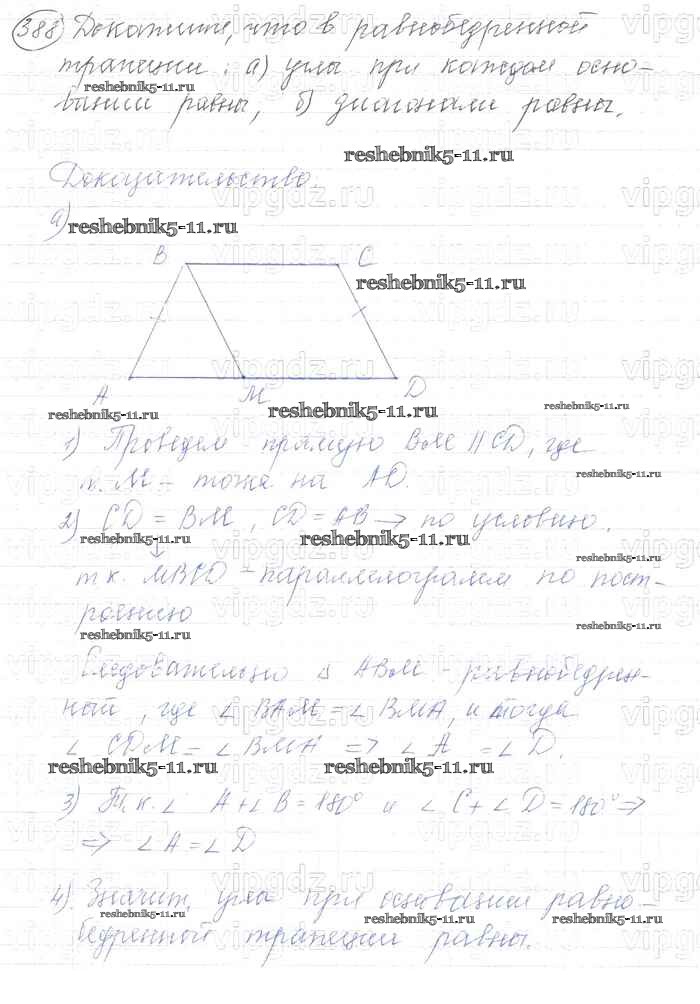 388 Докажите, что в равнобедренной
трапеции: а) углы при каждом осно-
reshebnik5-11.ru
вании равны, б) диагонали равны.
reshebnik5-11.ru
Доказательство.
а) reshebnik5-11.ru
B C
reshebnik5-11.ru
A M D
reshebnik5-11.ru reshebnik5-11.ru reshebnik5-11.ru
1) Проведем прямую BM || CD, где
т. M - точка на AD.
reshebnik5-11.ru
2) CD = BM, CD = AB → по условию.
reshebnik5-11.ru reshebnik5-11.ru
reshebnik5-11.ru
т.к. MBCD - параллелограмм по пост-
роению
reshebnik5-11.ru
reshebnik5-11.ru
Следовательно △ ABM - равнобедрен-
ный, где ∠ BAM = ∠ BMA, и тогда
∠ CDM = ∠ BMA => ∠ A = ∠ D.
reshebnik5-11.ru reshebnik5-11.ru
3) Т.к. ∠ A + ∠ B = 180° и ∠ C + ∠ D = 180° =>
=> ∠ A = ∠ D
4) Значит, угла при основании равно-
reshebnik5-11.ru reshebnik5-11.ru reshebnik5-11.ru
бедренной трапеции равны.